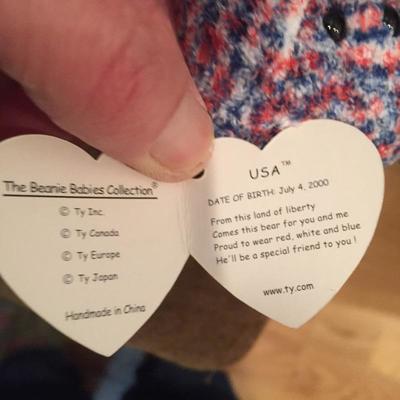 The Beanie Babies Collection®
© Ty Inc.
© Ty Canada
© Ty Europe
© Ty Japan
Handmade in China
USA™
DATE OF BIRTH: July 4, 2000
From this land of liberty
Comes this bear for you and me
Proud to wear red, white and blue
He'll be a special friend to you !
www.ty.com